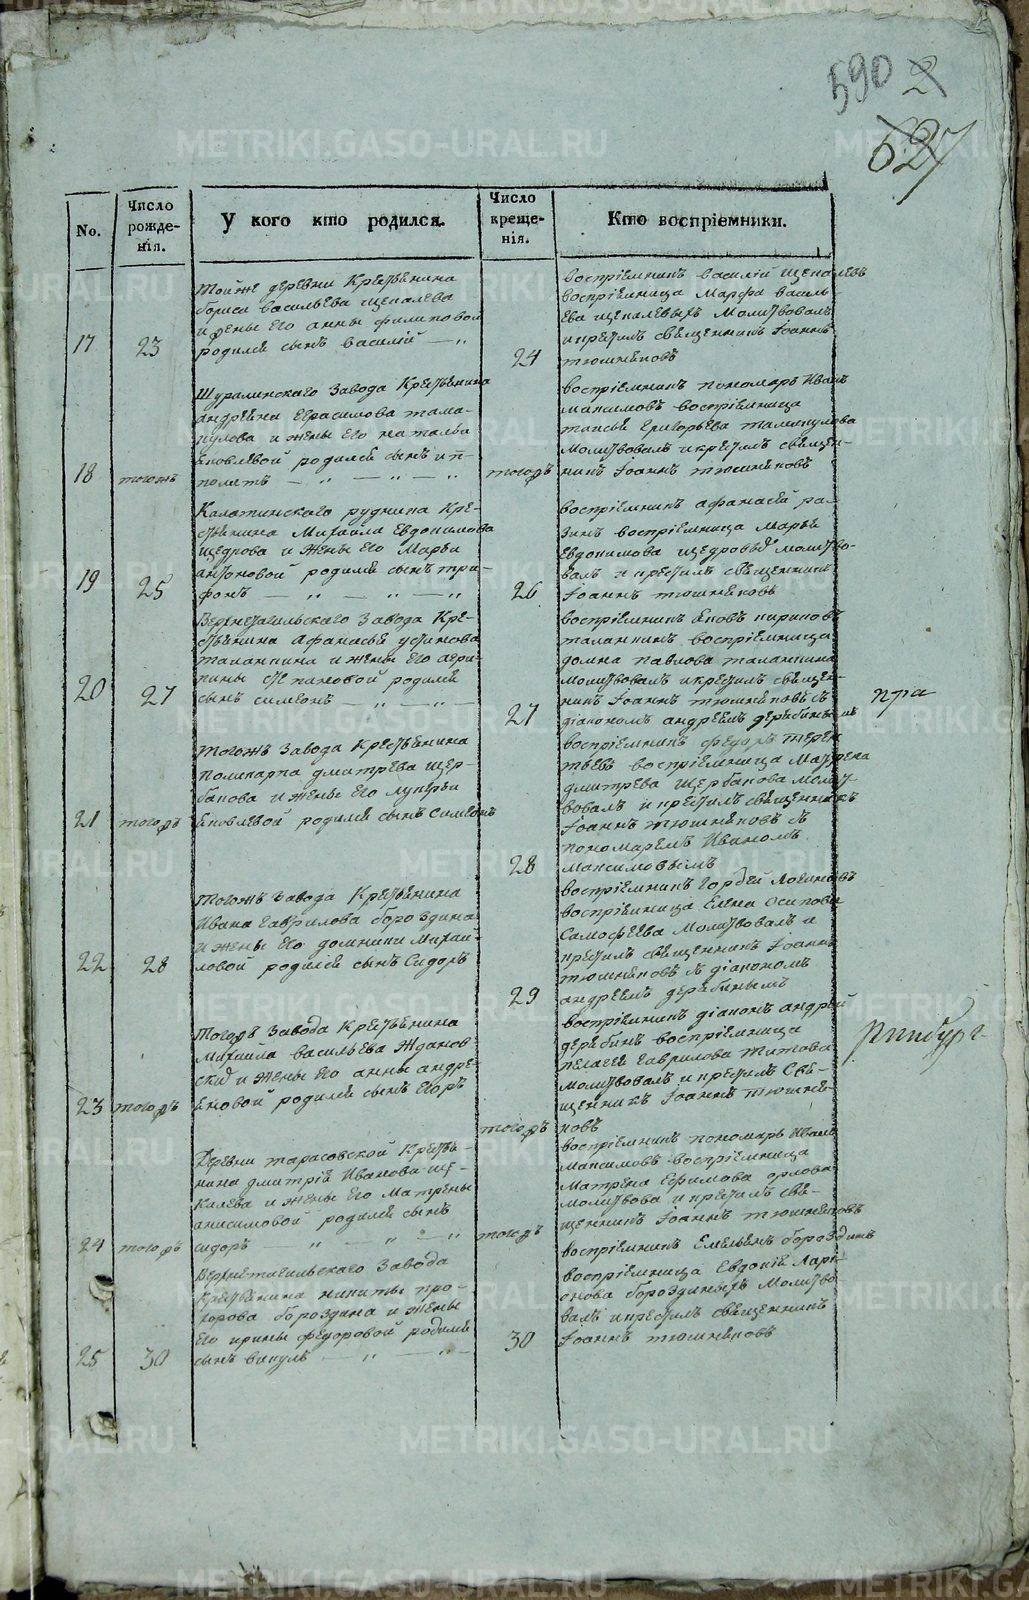 590 2
627
No.
Число рожде-нія.
У кого кто родился.
Число креще-нія.
Кто воспріемники.
17
23
тойже деревни Крестьянина
бориса васильева щепалева
и жены его анны филиповой
родился сынъ василій
24
воспріемникъ василій щепалевъ
воспріемница Марфа василь-
ева щепалевыхъ Молитвовалъ
и крестилъ священникъ Іоаннъ
тюшняковъ
18
тогожъ
Шуралинскаго Завода Крестьянина
андреяна герасимова тама-
кулова и жены его наталья
яковлевой родился сынъ ип-
политъ
тогожъ
воспріемникъ пономарь Иванъ
максимовъ воспріемница
таисья григорьева тамакулова
Молитвовалъ и крестилъ священ-
никъ Іоаннъ тюшняковъ
19
25
Калатинскаго рудника Кре-
стьянина Михаила Евдокимова
щедрова и жены Его Марьи
антоновой родился сынъ три-
фонъ
26
воспріемникъ афанасей ра-
зинъ воспріемница Марья
Евдокимова щедровыхъ молитво-
валъ и крестилъ священникъ
Іоаннъ тюшняковъ
20
27
Верхнетагильскаго Завода Кре-
стьянина Афанасья устинова
таланкина и жены Его агри-
пины степановой родился
сынъ симеонъ
27
воспріемникъ яковъ кириковъ
таланкинъ воспріемница
домна павлова таланкина
молитвовалъ и крестилъ священ-
никъ Іоаннъ тюшняковъ съ
діакономъ андреемъ дерябинымъ
21
тогожъ
тогожъ Завода Крестьянина
поликарпа дмитрева щер-
бакова и жены Его лукерьи
яковлевой родился сынъ Симеонъ
28
воспріемникъ федоръ терен
тьевъ воспріемница Мавра
дмитрева щербакова Молит
вовалъ и крестилъ священникъ
Іоаннъ тюшняковъ съ
пономаремъ Иваномъ
Максимовымъ
22
28
тогожъ Завода Крестьянина
Ивана гаврилова бороздина
и жены Его домники Михай-
ловой родился сынъ Сидоръ
29
воспріемникъ гордей логиновъ
воспріемница Елена осипова
Самофеева Молитвовалъ и
крестилъ священникъ Іоаннъ
тюшняковъ съ діакономъ
андреемъ дерябинымъ
23
тогожъ
тогожъ Завода Крестьянина
Михайла васильева Жданов-
ска и жены Его анны андре-
яновой родился сынъ Егоръ
тогожъ
воспріемникъ діаконъ андрей
дерябинъ воспріемница
пелагея гаврилова титова
Молитвовалъ и крестилъ Свя-
щенникъ Іоаннъ тюшня-
ковъ
24
тогожъ
Деревни тарасовской Крестья-
нина дмитрія Иванова ще-
калева и жены Его Матрены
анисимовой родился сынъ
сидоръ
тогожъ
воспріемникъ пономарь Иванъ
Максимовъ воспріемница
Матрена Ефимова орлова
молитвова и крестилъ свя-
щенникъ Іоаннъ тюшняковъ
25
30
Верхнетагильскаго Завода
Крестьянина никиты про-
хорова бороздина и жены
Его ирины федоровой родился
сынъ викулъ
30
воспріемникъ Емельянъ бороздинъ
воспріемница Евдокія Лари-
онова бороздиныхъ Молитво-
валъ и крестилъ священникъ
Іоаннъ тюшняковъ
METRIKI.GASO-URAL.RU